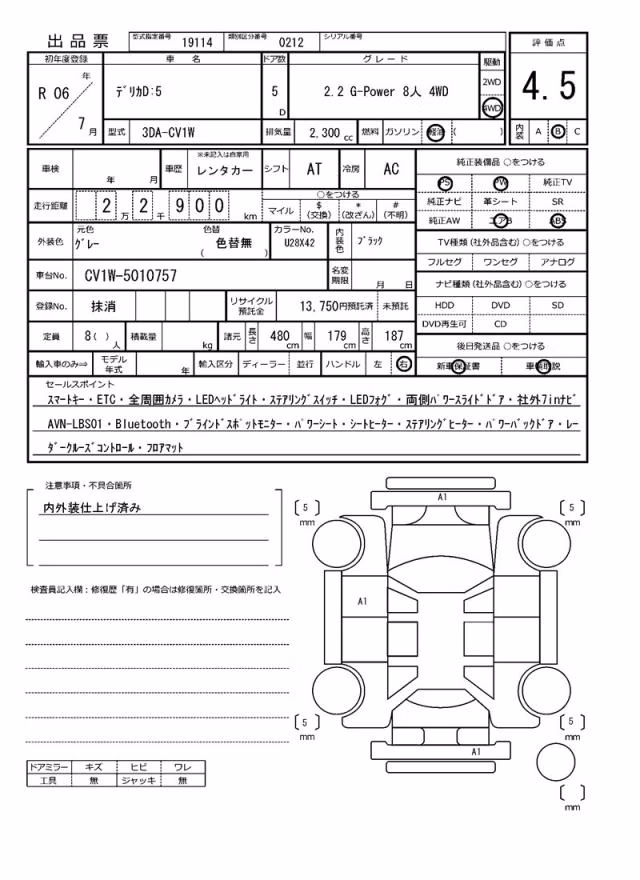 出品票 型式指定番号 19114 類別区分番号 0212 シリアル番号
評価点
初年度登録 車名 ドア数 グレード 駆動
R 06 年 7 月 デリカD:5 5 D 2.2 G-Power 8人 4WD 2WD 4WD 4.5
型式 3DA-CV1W 排気量 2,300 cc 燃料 ガソリン 軽油 ( ) 内装 A B C
車検 年 月 車歴 ※未記入は自家用 レンタカー シフト AT 冷房 AC 純正装備品 ○をつける
PS PW 純正TV
走行距離 2 万 2 千 9 0 0 km ○をつける 純正ナビ 革シート SR
マイル $(交換) *(改ざん) #(不明) 純正AW エアB ABS
外装色 元色 グレー 色替 色替無 ( ) カラーNo. U28X42 内装色 ブラック TV種類 (社外品含む) ○をつける
フルセグ ワンセグ アナログ
車台No. CV1W-5010757 名変期限 月 日 ナビ種類 (社外品含む) ○をつける
登録No. 抹消 リサイクル預託金 13,750円預託済 未預託 HDD DVD SD
DVD再生可 CD
定員 8( ) 人 積載量 kg 諸元 長さ 480 cm 幅 179 cm 高さ 187 cm 後日発送品 ○をつける
輸入車のみ⇒ モデル年式 年 輸入区分 ディーラー 並行 ハンドル 左 右 新車保証書 車輌取説
セールスポイント
スマートキー・ETC・全周囲カメラ・LEDヘッドライト・ステアリングスイッチ・LEDフォグ・両側パワースライドドア・社外7inナビ
AVN-LBS01・Bluetooth・ブラインドスポットモニター・パワーシート・シートヒーター・ステアリングヒーター・パワーバックドア・レー
ダークルーズコントロール・フロアマット
注意事項・不具合箇所
内外装仕上げ済み
検査員記入欄：修復歴「有」の場合は修復箇所・交換箇所を記入
A1
5 mm
5 mm
A1
5 mm
5 mm
A1
mm
ドアミラー キズ ヒビ ワレ
工具 無 ジャッキ 無